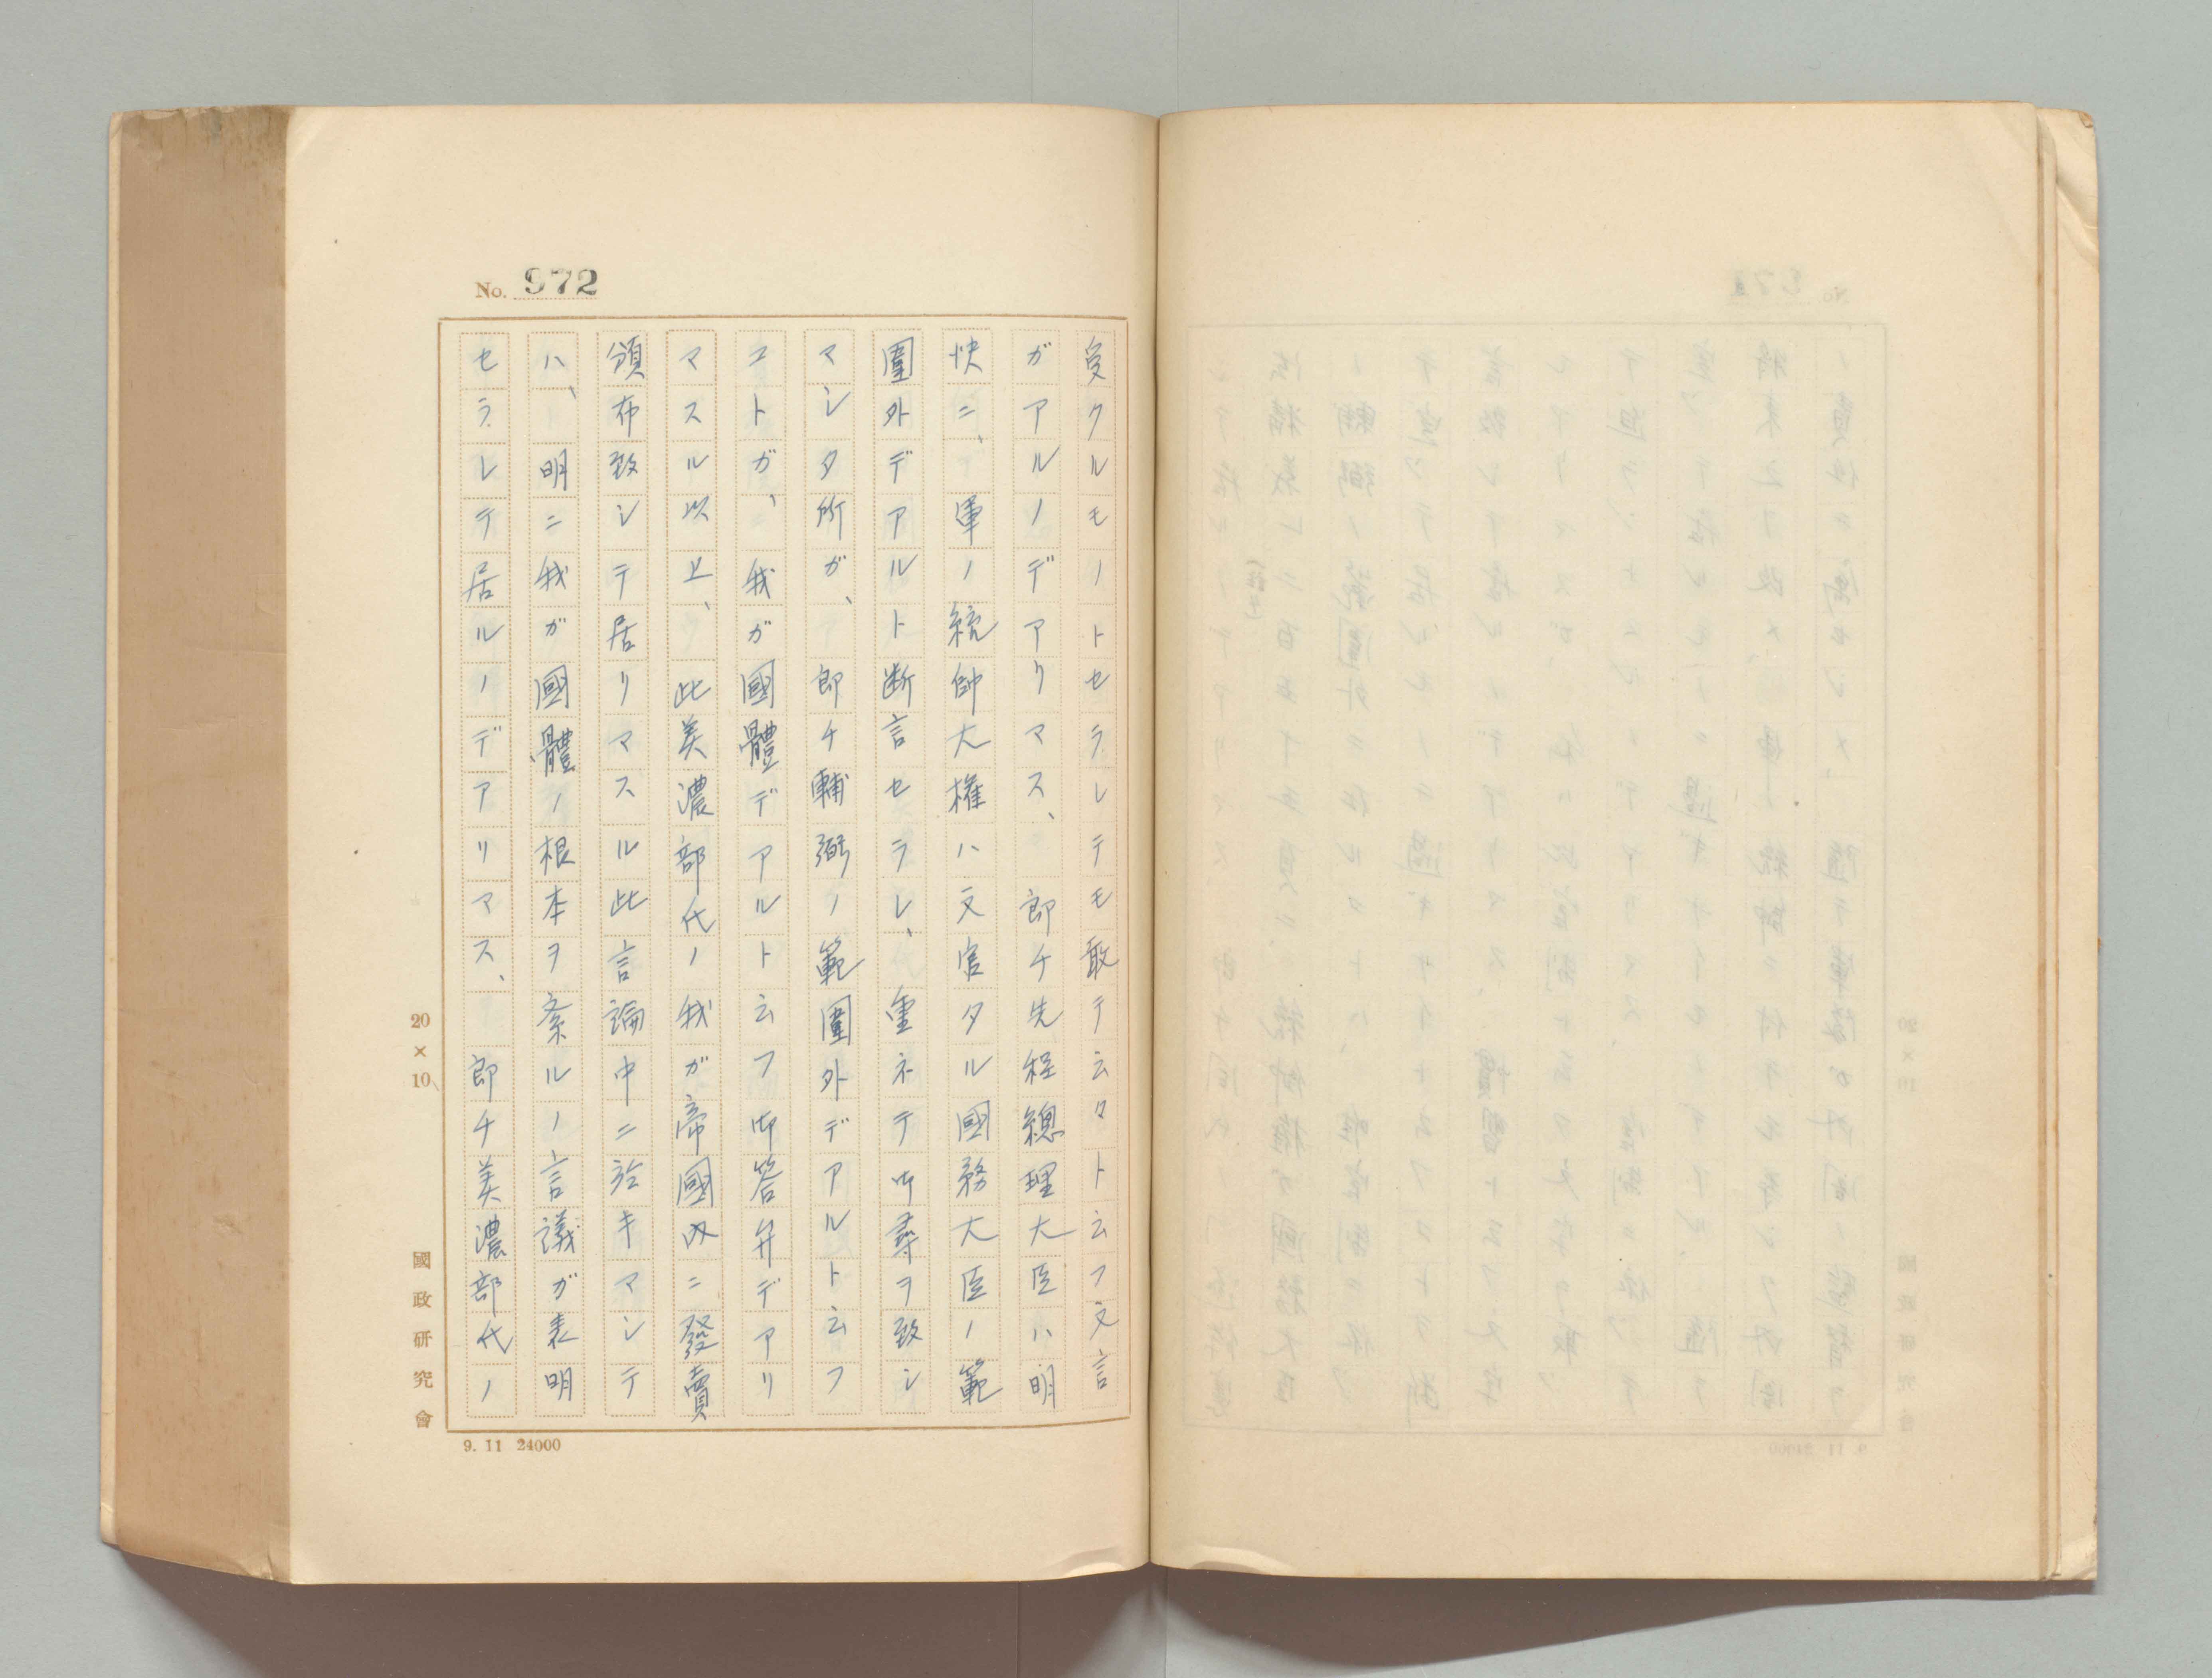 No. 972
受クルモノトセラレテモ敢テ云タト云フ文言
ガアルノデアリマス、即チ先程總理大臣ハ明
快ニ、軍ノ統帥大權ハ文官タル國務大臣ノ範
圍外デアルト断言セラレ、重ネテ御尋ヲ致シ
マシタ所ガ、即チ輔弼ノ範圍外デアルト云フ
コトガ、我ガ國體デアルト云フ御答弁デアリ
マスル以上、此美濃部代ノ我ガ帝國内ニ發賣
頒布致シテ居リマスル此言論中ニ於キマシテ
ハ、明ニ我ガ國體ノ根本ヲ紊ルノ言議ガ表明
セラレテ居ルノデアリマス、即チ美濃部代ノ
20×10
國政研究會
9. 11 24000